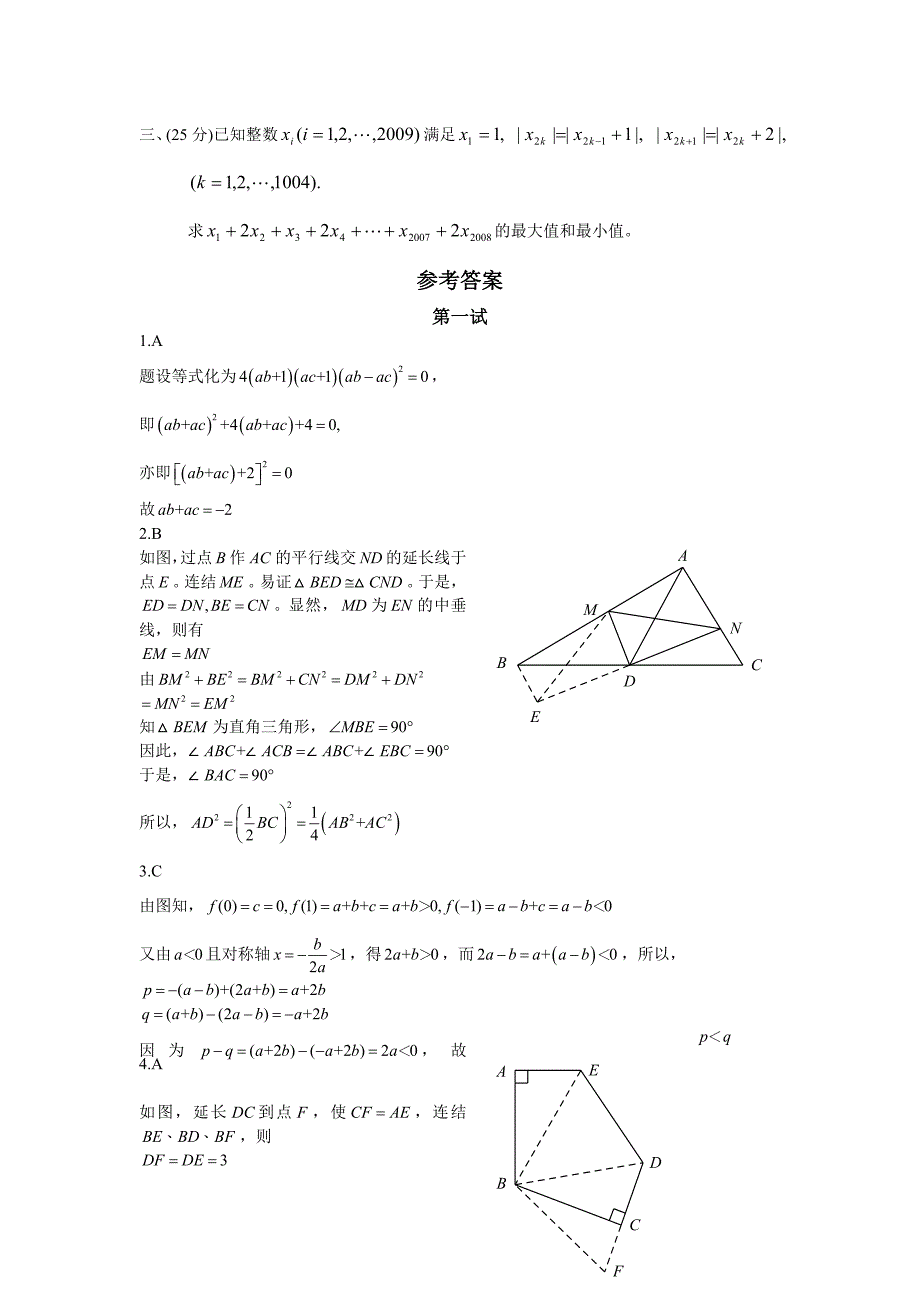 三、(25 分)已知整数 x_i (i = 1,2,⋯,2009) 满足 x_1 = 1, | x_{2k} |=| x_{2k−1} + 1 |, | x_{2k+1} |=| x_{2k} + 2 |,
(k = 1,2,⋯,1004).
求 x_1 + 2x_2 + x_3 + 2x_4 + ⋯ + x_{2007} + 2x_{2008} 的最大值和最小值。
参考答案
第一试
1.A
题设等式化为 4(ab+1)(ac+1)(ab − ac)^2 = 0，
即 (ab+ac)^2 +4(ab+ac)+4 = 0,
亦即 [(ab+ac)+2]^2 = 0
故 ab+ac = −2
2.B
如图，过点 B 作 AC 的平行线交 ND 的延长线于
点 E 。连结 ME 。易证△ BED ≅△ CND 。于是，
ED = DN, BE = CN 。显然， MD 为 EN 的中垂
线，则有
EM = MN
由 BM^2 + BE^2 = BM^2 + CN^2 = DM^2 + DN^2
= MN^2 = EM^2
知△ BEM 为直角三角形，∠MBE = 90°
因此，∠ ABC+∠ ACB =∠ ABC+∠ EBC = 90°
于是，∠ BAC = 90°
所以， AD^2 = (1/2 BC)^2 = 1/4 (AB^2+AC^2)
A
M
N
B
D
C
E
3.C
由图知， f(0) = c = 0, f(1) = a+b+c = a+b>0, f(−1) = a − b+c = a − b<0
又由 a<0 且对称轴 x = − b/2a >1，得 2a+b>0，而 2a − b = a+(a − b)<0，所以，
p = −(a − b)+(2a+b) = a+2b
q = (a+b) − (2a − b) = −a+2b
因 为 p − q = (a+2b) − (−a+2b) = 2a<0， 故
p＜q
4.A
如图，延长 DC 到点 F ，使 CF = AE ，连结
BE、BD、BF ，则
DF = DE = 3
A
E
D
B
C
F